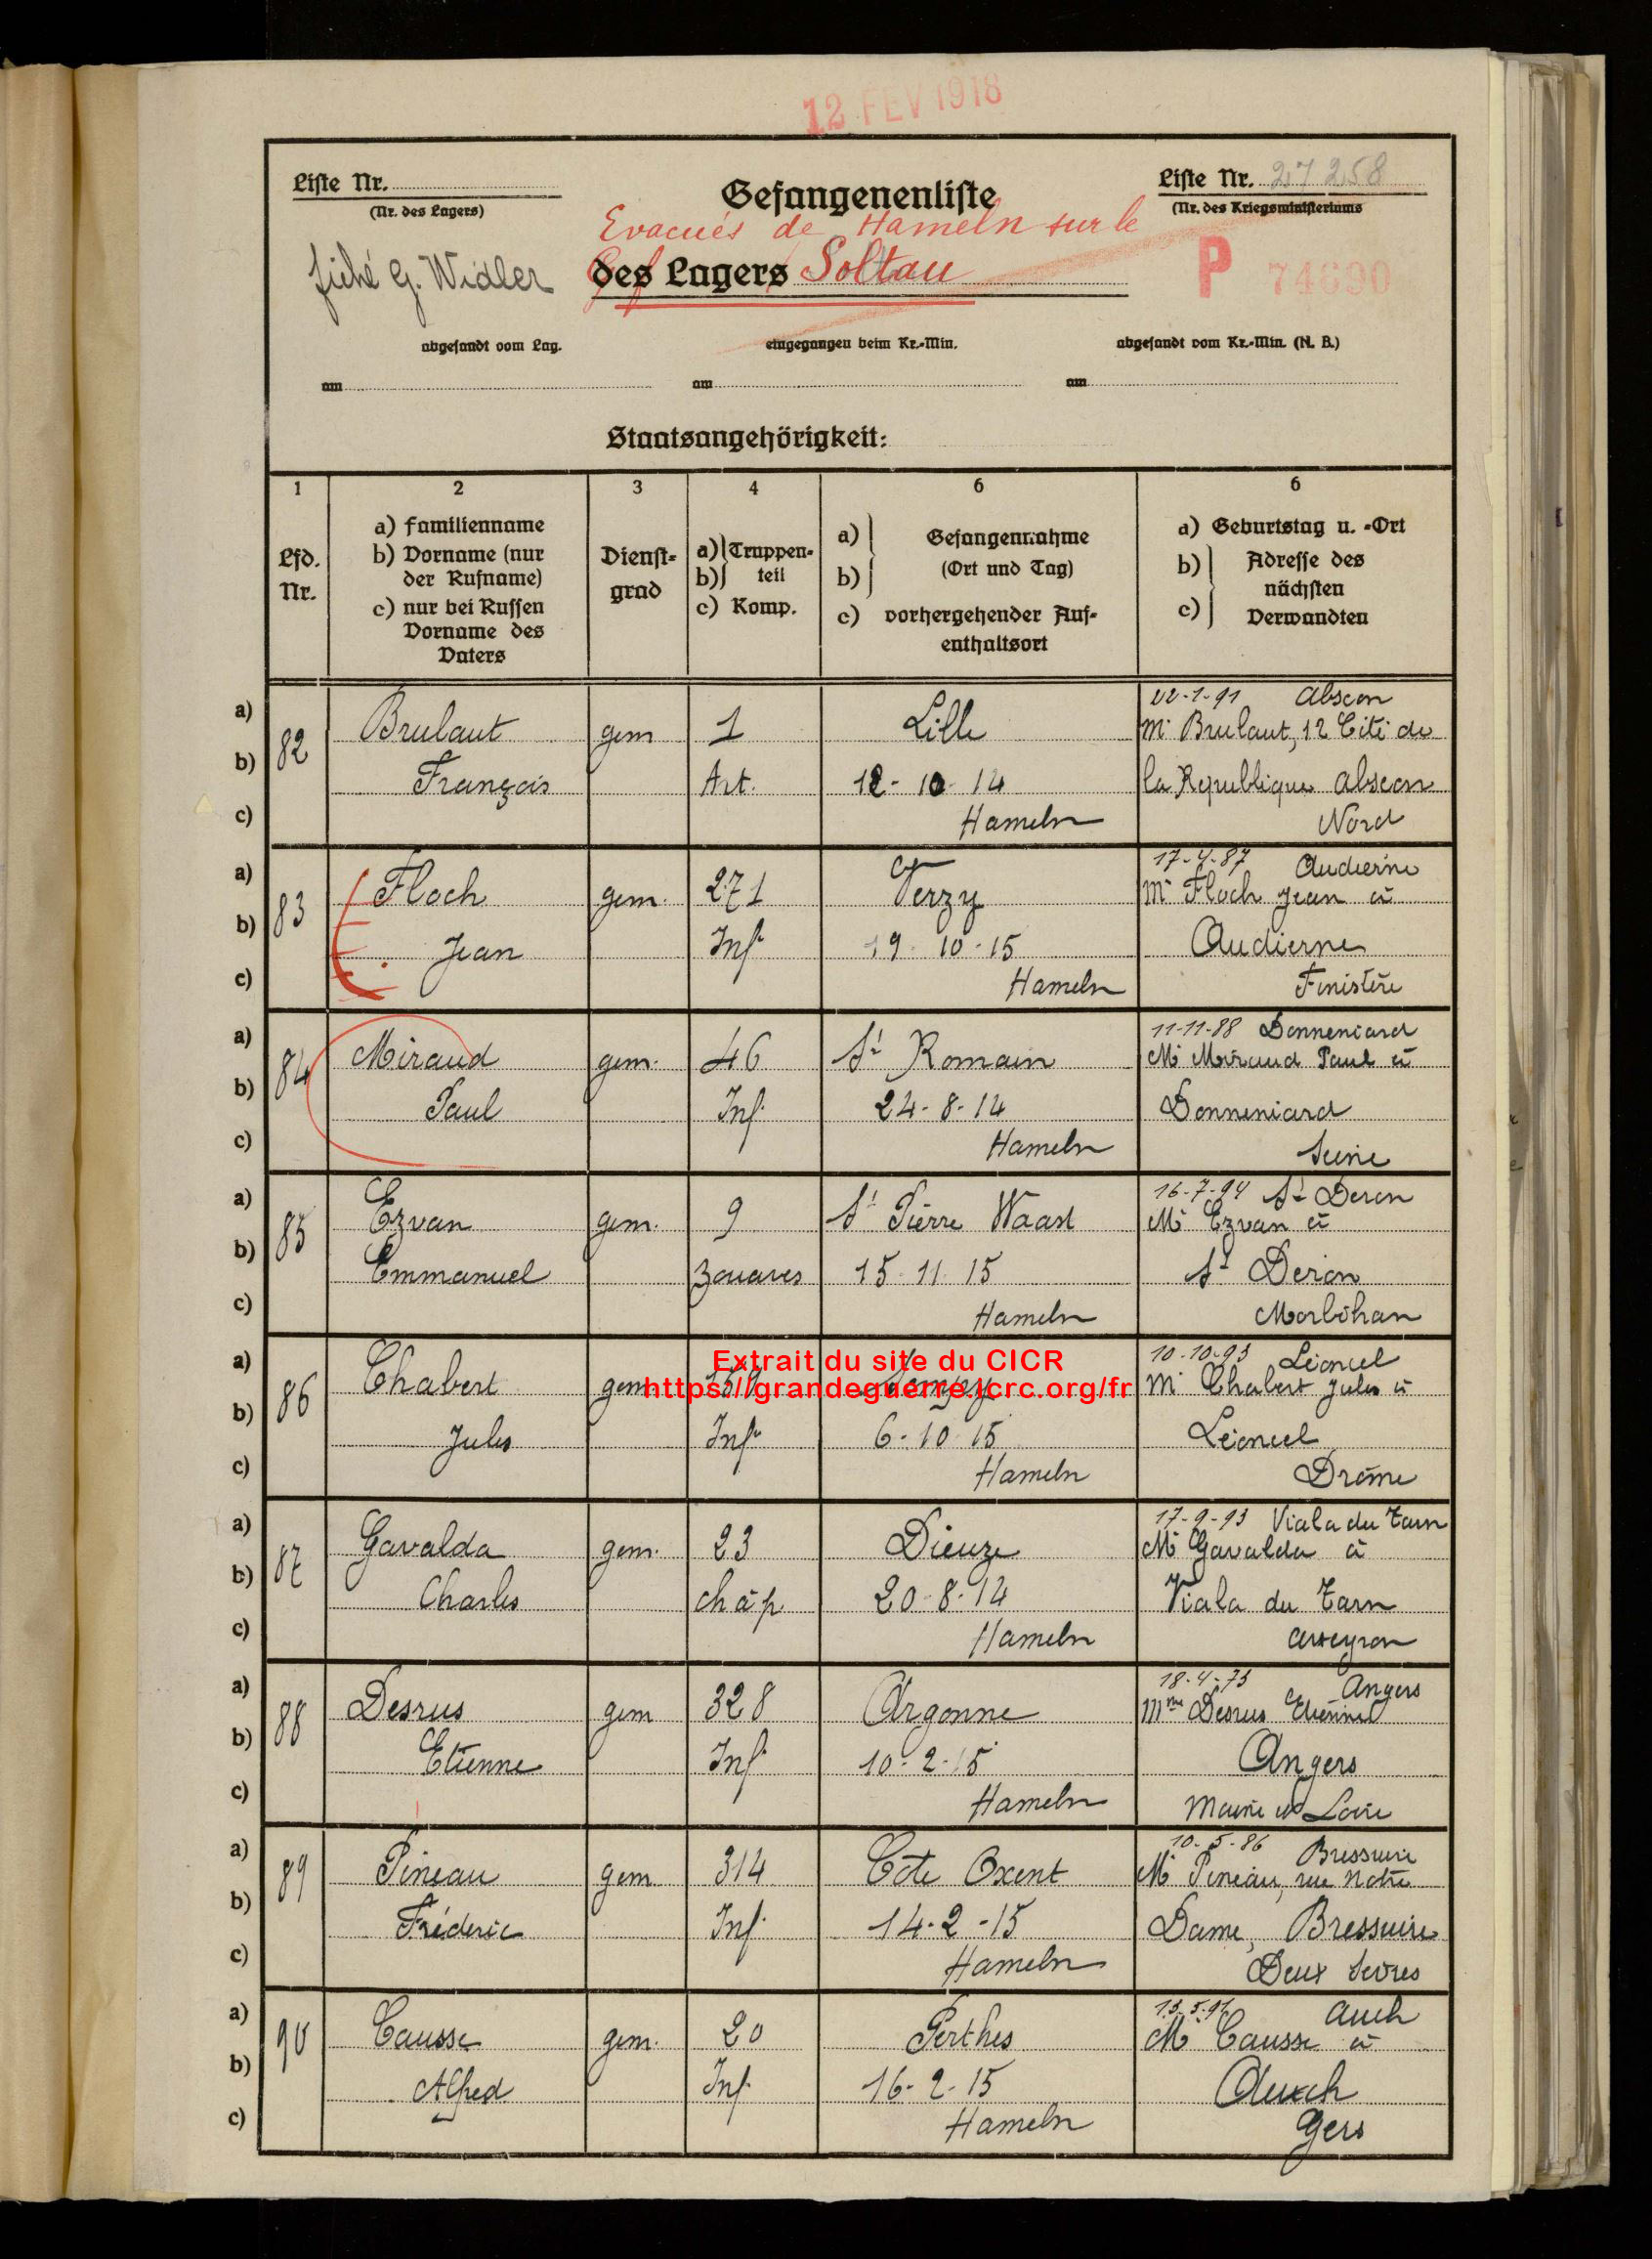 12 FEV 1918
Liste Nr.
(Nr. des Lagers)
Gefangenenliste
Liste Nr. 27258
(Nr. des Kriegsministeriums
Evacués de Hameln sur le
fiché G. Widler
des Lagers Soltau
P 74690
abgesandt vom Lag.
eingegangen beim Kr.-Min.
abgesandt vom Kr.-Min. (N. B.)
am
am
am
Staatsangehörigkeit:
1
2
3
4
6
6
Lfd. Nr.
a) Familienname
b) Vorname (nur
der Rufname)
c) nur bei Russen
Vorname des
Vaters
Dienst-
grad
a) Truppen-
b) teil
c) Komp.
a) Gefangennahme
b) (Ort und Tag)
c) vorhergehender Auf-
enthaltsort
a) Geburtstag u. -Ort
b) Adresse des
nächsten
c) Verwandten
22-1-91 Abscon
a) 82 Brulaut gem 1 Lille Mr Brulaut, 12 Cité de
b) François Art. 12-10-14 la République Abscon
c) Hameln Nord
17-4-87 Audierne
a) 83 Floch gem. 271 Verzy Mr Floch Jean à
b) Jean Infie 19-10-15 Audierne
c) Hameln Finistère
11-11-88 Donneniard
a) 84 Miraud gem. 46 St Romain Mr Miraud Paul à
b) Paul Inf. 24-8-14 Donneniard
c) Hameln Seine
16-7-94 St Deron
a) 85 Ezvan gem. 9 St Pierre Waast Mr Ezvan à
b) Emmanuel zouaves 15-11-15 St Deron
c) Hameln Morbihan
Extrait du site du CICR
https://grandeguerre.icrc.org/fr
10-10-93 Léoncel
a) 86 Chabert gem. 159 Mr Chabert Jules à
b) Jules Infie 6-10-15 Léoncel
c) Hameln Drôme
17-9-93 Viala du Tarn
a) 87 Gavalda gem. 23 Dieuze Mr Gavalda à
b) Charles chap 20-8-14 Viala du Tarn
c) Hameln Aveyron
18-4-73 Angers
a) 88 Desrus gem 328 Argonne Mme Desrus Etienne
b) Etienne Inf. 10-2-15 Angers
c) Hameln Maine et Loire
10-5-86 Bressuire
a) 89 Pineau gem 314 Cote Oxent Mr Pineau, rue Notre
b) Fréderic Inf. 14-2-15 Dame, Bressuire
c) Hameln Deux Sevres
Auch
a) 90 Causse gem. 20 Perthes Mr Causse à
b) Alfred Inf. 16-2-15 Auch
c) Hameln Gers